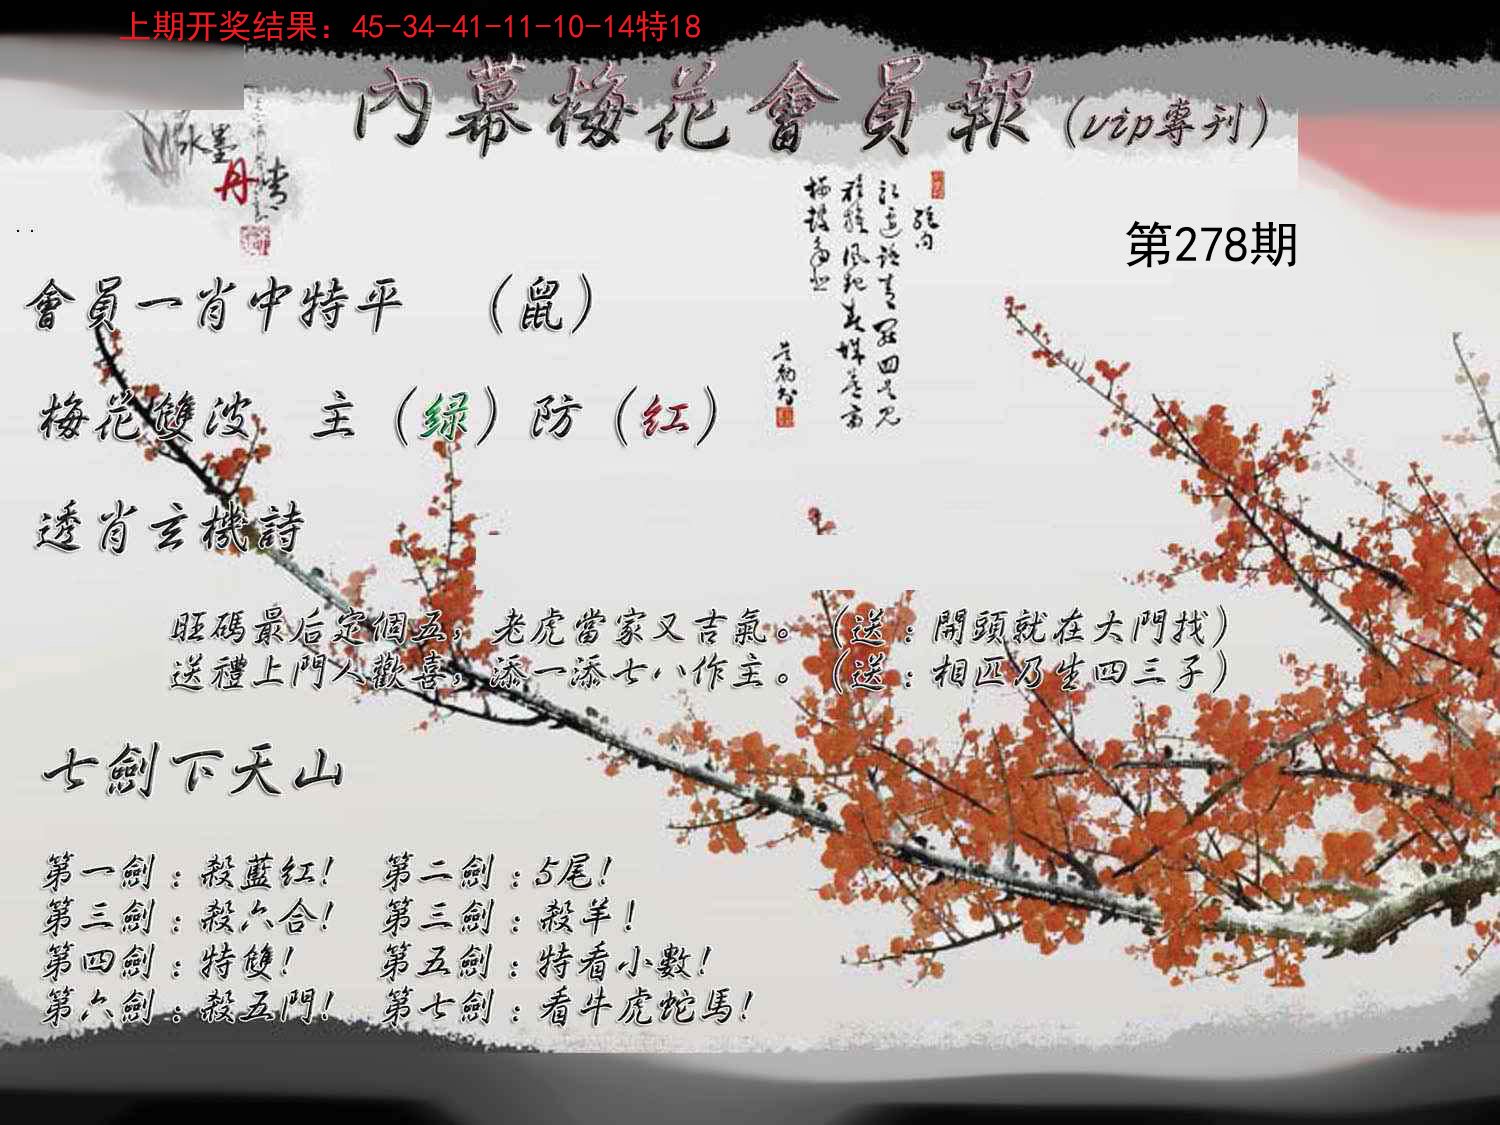 上期开奖结果：45-34-41-11-10-14特18
內幕梅花會員報（vip專刊）
水墨
丹情
第278期
會員一肖中特平　（鼠）
梅花雙波　主（绿）防（红）
透肖玄機詩
旺碼最后定個五，老虎當家又吉氣。（送：開頭就在大門找）
送禮上門人歡喜，添一添七八作主。（送：相匹乃生四三子）
七劍下天山
第一劍：殺藍紅！　第二劍：5尾！
第三劍：殺六合！　第三劍：殺羊！
第四劍：特雙！　第五劍：特看小數！
第六劍：殺五門！　第七劍：看牛虎蛇馬！